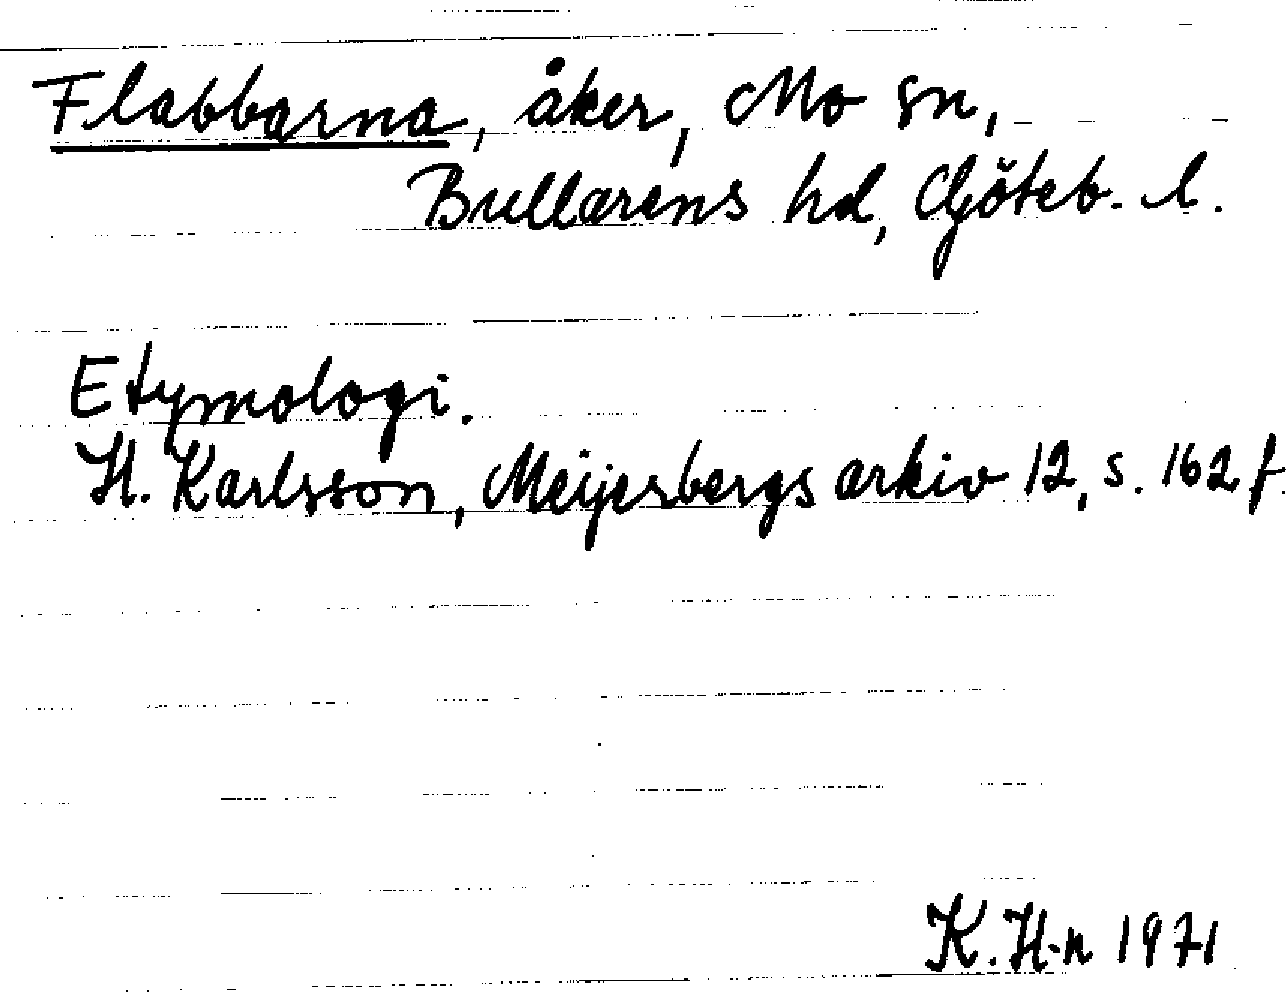 Flabbarna, åker, Mo sn,
Bullarens hd, Göteb. l.
Etymologi.
H. Karlsson, Meijerbergs arkiv 12, s. 162 f.
K. H-n 1971